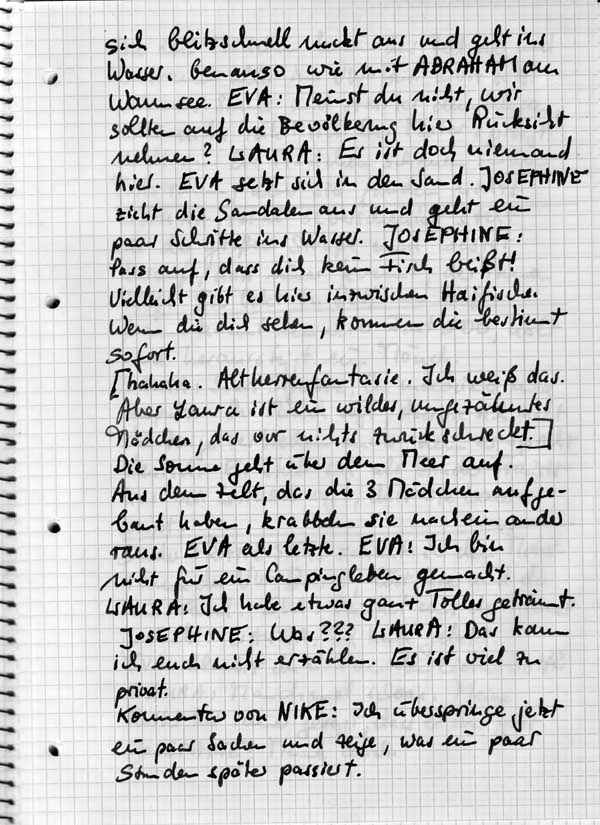 sich blitzschnell nackt aus und geht ins
Wasser. Genauso wie mit ABRAHAM am
Wannsee. EVA: Meinst du nicht, wir
sollten auf die Bevölkerung hier Rücksicht
nehmen? LAURA: Es ist doch niemand
hier. EVA setzt sich in den Sand. JOSEPHINE
zieht die Sandalen aus und geht ein
paar Schritte ins Wasser. JOSEPHINE:
Pass auf, dass dich kein Fisch beißt!
Vielleicht gibt es hier inzwischen Haifische.
Wenn die dich sehen, kommen die bestimmt
sofort.
[hahaha. Altherrenfantasie. Ich weiß das.
Aber Laura ist ein wildes, ungezähmtes
Mädchen, das vor nichts zurückschreckt.]
Die Sonne geht über dem Meer auf.
Aus dem Zelt, das die 3 Mädchen aufge-
baut haben, krabbeln sie nacheinander
raus. EVA als letzte. EVA: Ich bin
nicht für ein Campingleben gemacht.
LAURA: Ich habe etwas ganz Tolles geträumt.
JOSEPHINE: Was??? LAURA: Das kann
ich euch nicht erzählen. Es ist viel zu
privat.
Kommentar von NIKE: Ich überspringe jetzt
ein paar Sachen und zeige, was ein paar
Stunden später passiert.